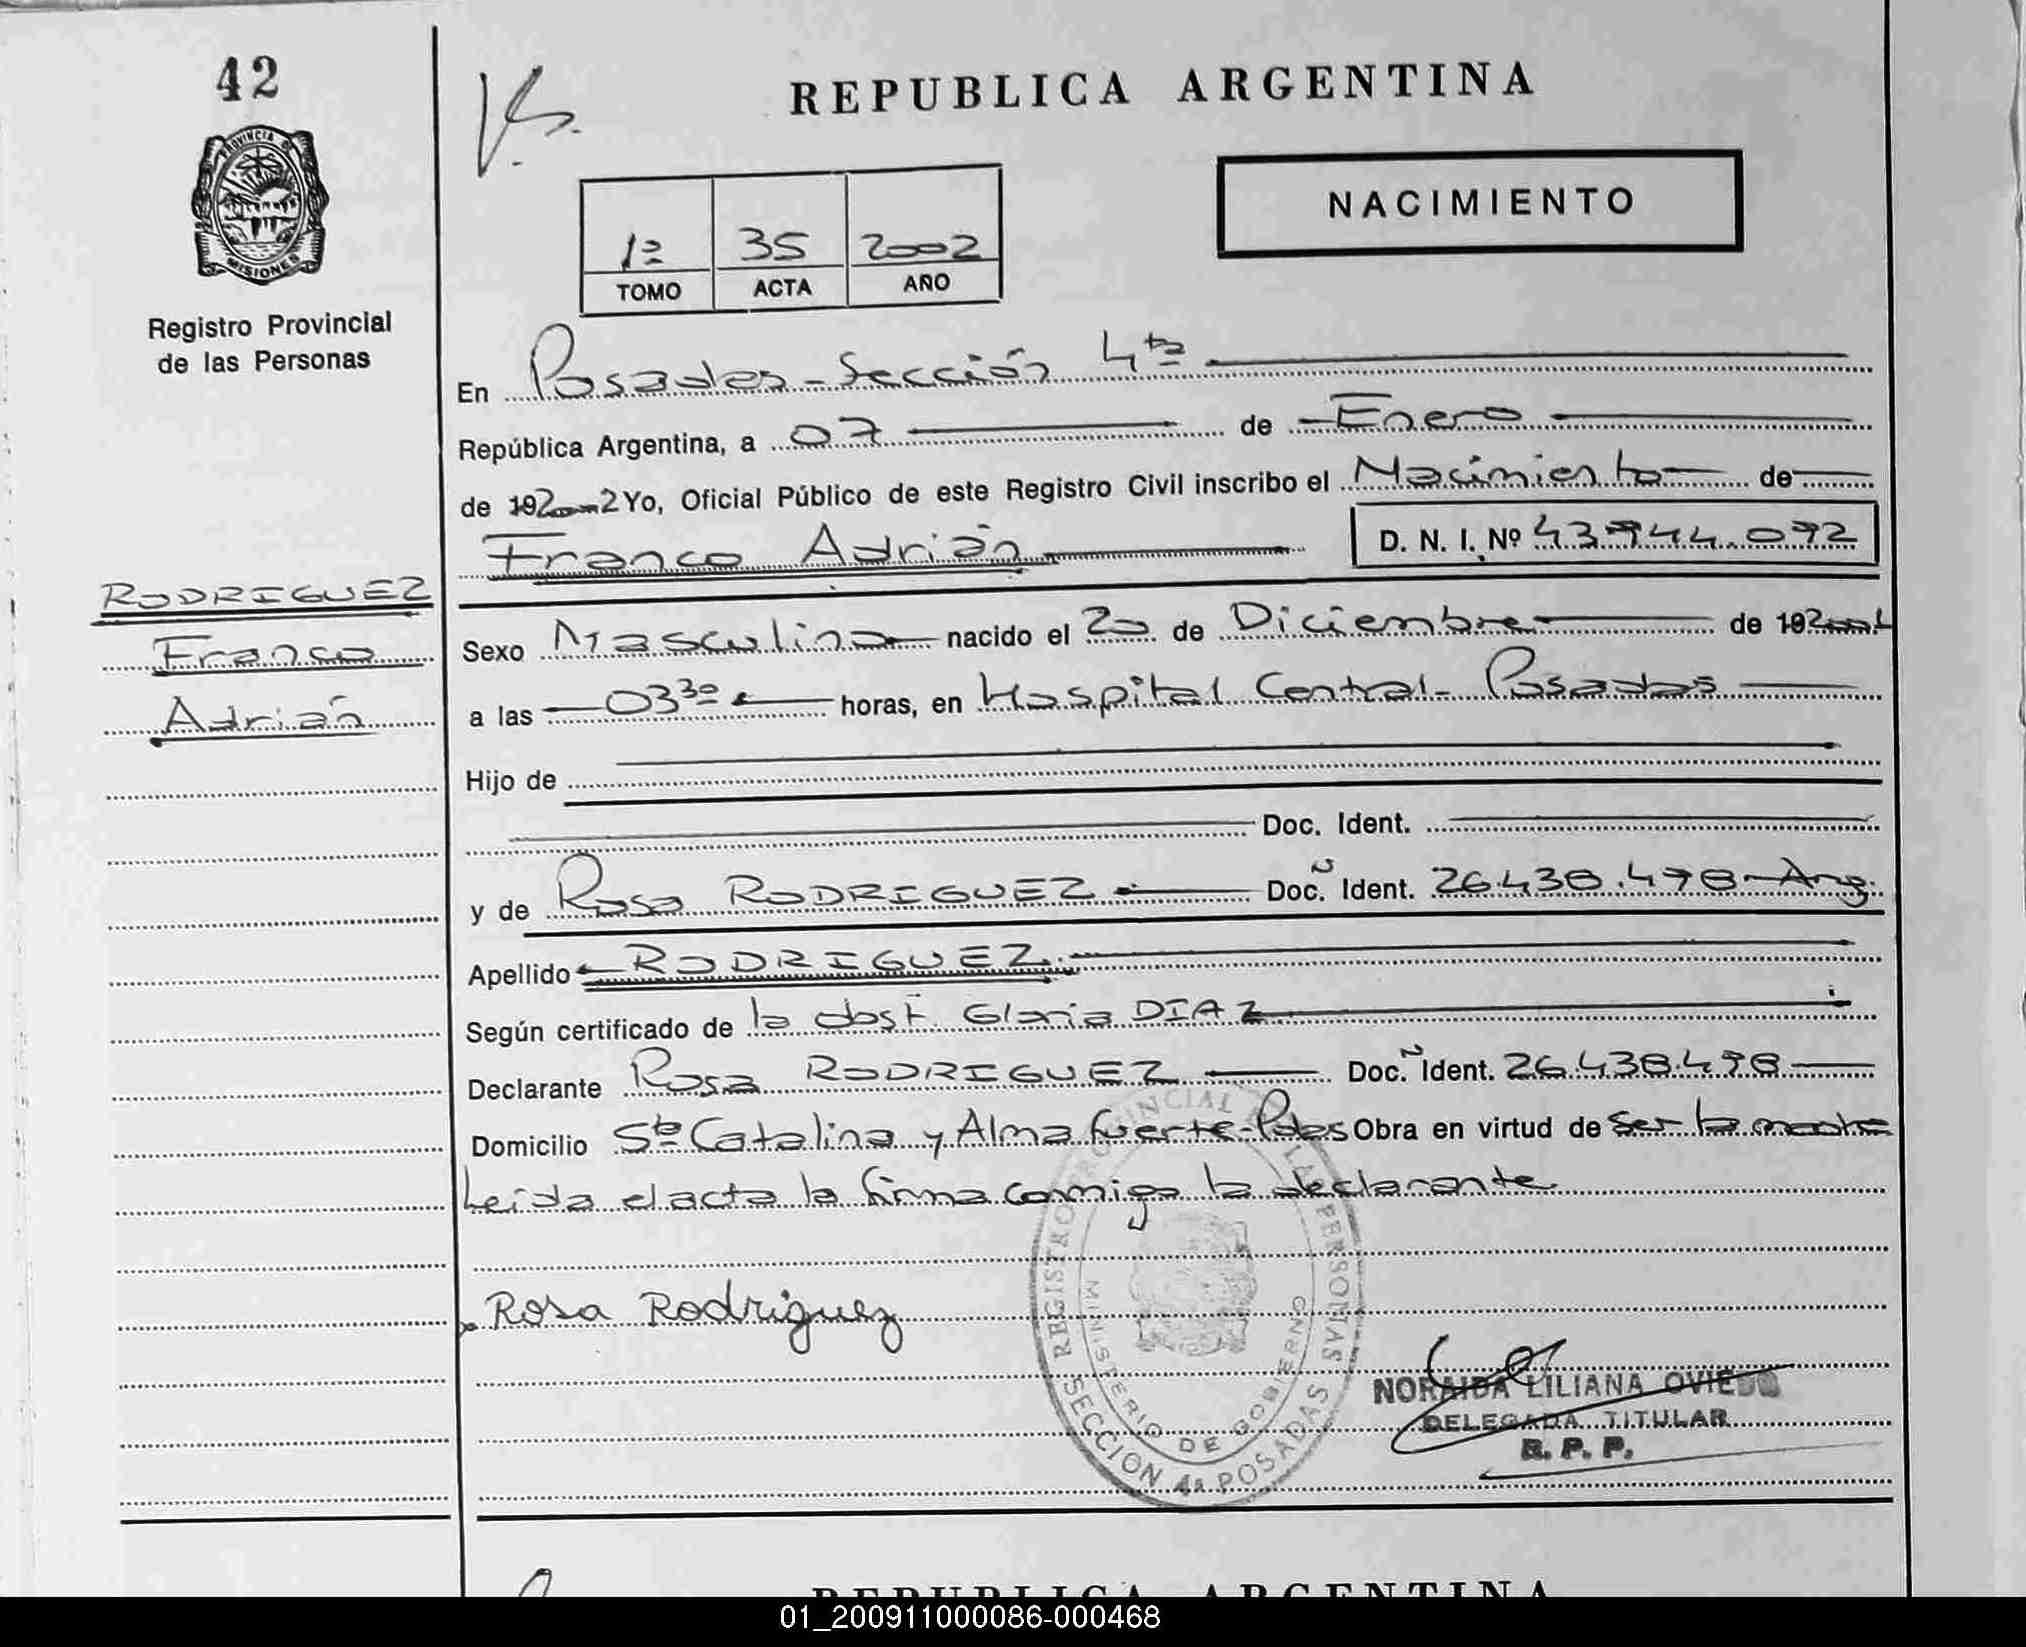 42
REPUBLICA ARGENTINA
PROVINCIA DE
MISIONES
Registro Provincial
de las Personas
NACIMIENTO
1º 35 2002
TOMO ACTA AÑO
En Posadas - Sección 4ta
República Argentina, a 07 de Enero
de 192002 Yo, Oficial Público de este Registro Civil inscribo el Nacimiento de
Franco Adrián D. N. I. Nº 43.944.092
RODRIGUEZ
Franco
Adrián
Sexo Masculino nacido el 20 de Diciembre de 192001
a las 03 30 horas, en Hospital Central - Posadas
Hijo de
Doc. Ident.
y de Rosa RODRIGUEZ Doc. Ident. 26.438.498 - Arg.
Apellido RODRIGUEZ
Según certificado de la obst. Gloria DIAZ
Declarante Rosa RODRIGUEZ Doc. Ident. 26.438.498
Domicilio Sta Catalina y Alma fuerte - Pdas Obra en virtud de ser la madre
Leida el acta la firma conmigo la declarante
Rosa Rodriguez
REGISTRO PROVINCIAL DE LAS PERSONAS
MINISTERIO DE GOBIERNO
SECCION 4a POSADAS
NORAIDA LILIANA OVIEDO
DELEGADA TITULAR
R. P. P.
REPUBLICA ARGENTINA
01_200911000086-000468